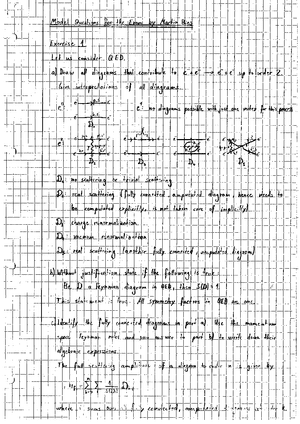 Model Questions for the Exam by Martin
Exercise 1
Let us consider QED.
a) Draw all diagrams that contribute to e⁻ + e⁺ → e⁻ + e⁺ up to order 2.
Give interpretations of all diagrams.
e⁰:
e¹: no diagrams possible with just one vertex for this process
D₁
e²:
D₂ D₃ D₄ D₅
D₁: no scattering or trivial scattering
D₂: real scattering (fully connected, amputated diagram, hence needs to
be computed explicitly, is not taken care of implicitly)
D₃: charge renormalization
D₄: vacuum renormalization
D₅: real scattering (another fully connected, amputated diagram)
b) Without justification, state if the following is true:
Be D a Feynman diagram in QED, then S(D) = 1.
This statement is true. All symmetry factors in QED are one.
c) Identify the fully connected diagrams in part a) Use the momentum
space Feynman rules and your answer in part b) to write down their
algebraic expressions.
The full scattering amplitude of a diagram to order n is given by
where i sums over all fully connected, amputated diagrams